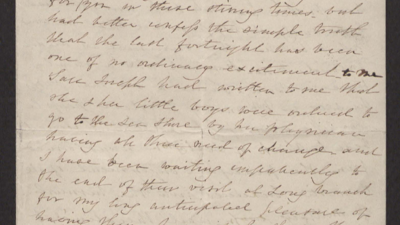 for you in these stirring times. but
had better confess the simple truth
that the last fortnight has been
one of no ordinary excitement to me
Sara Joseph had written to me that
she & her little boys were ordered to
go to the Sea Shore by her physician
having all three need of change and
I have been waiting impatiently to
the end of their visit at Long branch
for my long anticipated pleasure of
having them